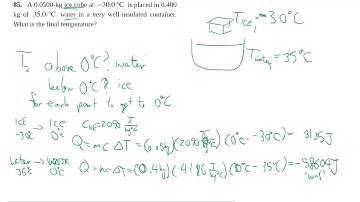 85. A 0.0500-kg ice cube at −30.0 °C is placed in 0.400
kg of 35.0-°C water in a very well-insulated container.
What is the final temperature?
T ice,i = -30°C
T water,i = 35°C
T₂ above 0°C? water
below 0°C? ice
for each part to get to 0°C
ICE → ICE
-30°C 0°C
C ice = 2090 J/kg°C
Q = mcΔT = (0.05kg)(2090 J/kg°C)(0°C - -30°C) = 3135J
water → water
35°C 0°C
Q = mcΔT = (0.4kg)(4186 J/kg°C)(0°C - 35°C) = -58604J